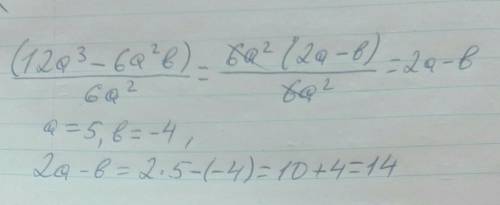 (12a³ - 6a²в) / 6a² = 6a² (2a - в) / 6a² = 2a - в
a = 5, в = -4,
2a - в = 2·5 - (-4) = 10 + 4 = 14